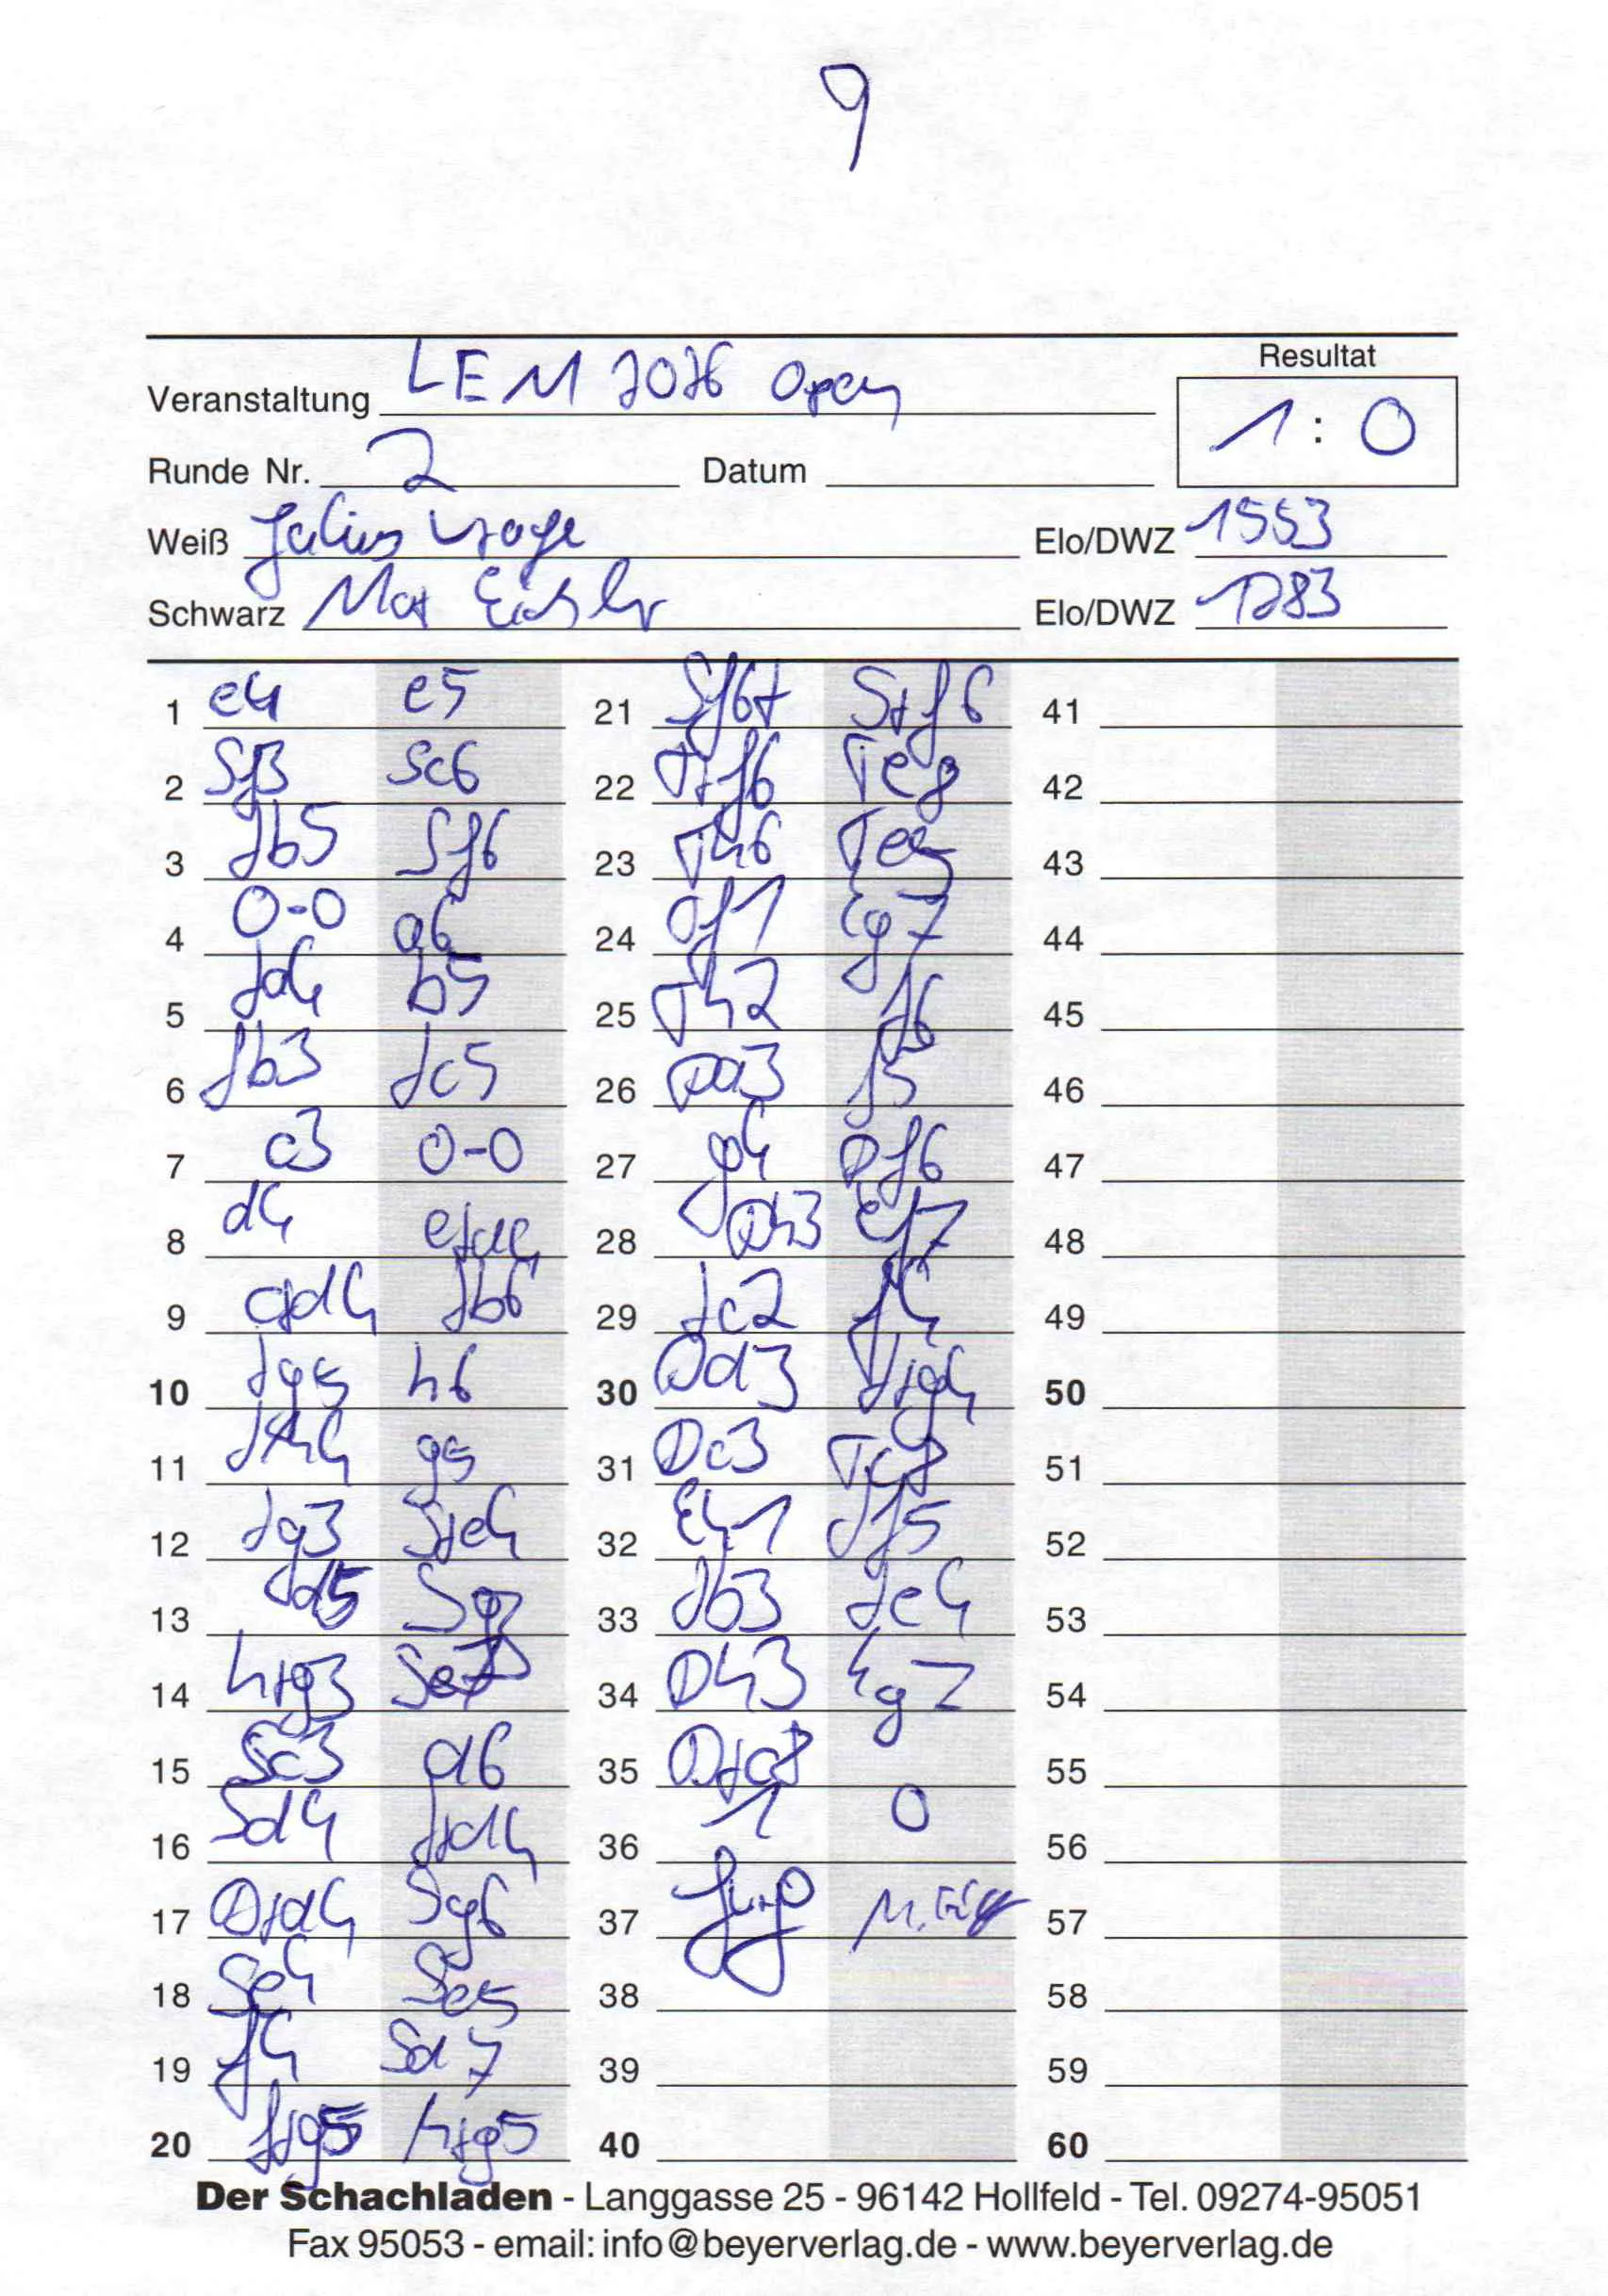 9
Resultat
Veranstaltung LEM 2026 Open
1 : 0
Runde Nr. 2 Datum
Weiß Julius Elo/DWZ 1553
Schwarz Max Elo/DWZ 1783
1 e4 e5 21 Sf6+ Sxf6 41
2 Sf3 Sc6 22 Txf6 Te8 42
3 Lb5 Sf6 23 Th6 Te5 43
4 0-0 a6 24 Df1 Kg7 44
5 La4 b5 25 Th2 f6 45
6 Lb3 Lc5 26 Da3 f5 46
7 c3 0-0 27 g4 Df6 47
8 d4 exd4 28 Dh3 Kf7 48
9 cxd4 Lb6 29 Lc2 f4 49
10 Lg5 h6 30 Dd3 Lxg4 50
11 Lh4 g5 31 Dc3 Tc8 51
12 Lg3 Sxe4 32 Kh1 Lf5 52
13 d5 Sg3 33 Lb3 Le4 53
14 hxg3 Se7 34 Dh3 Kg7 54
15 Sc3 d6 35 Dxc8 55
16 Sd4 Lxd4 36 1 0 56
17 Dxd4 Sg6 37 57
18 Se4 Se5 38 58
19 f4 Sd7 39 59
20 fxg5 hxg5 40 60
Der Schachladen - Langgasse 25 - 96142 Hollfeld - Tel. 09274-95051
Fax 95053 - email: info@beyerverlag.de - www.beyerverlag.de